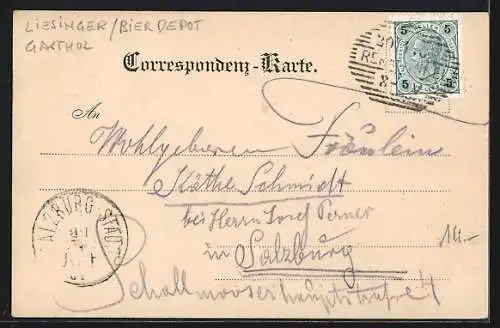 LIESINGER/BIERDEPOT
GASTHOF
5 5
5 5
30
8
Correspondenz-Karte.
An
Wohlgeboren Fräulein
Käthe Schmidt
bei Herrn Josef Perner
in Salzburg
Schallmooserhauptstraße 4
14.-
SALZBURG STADT